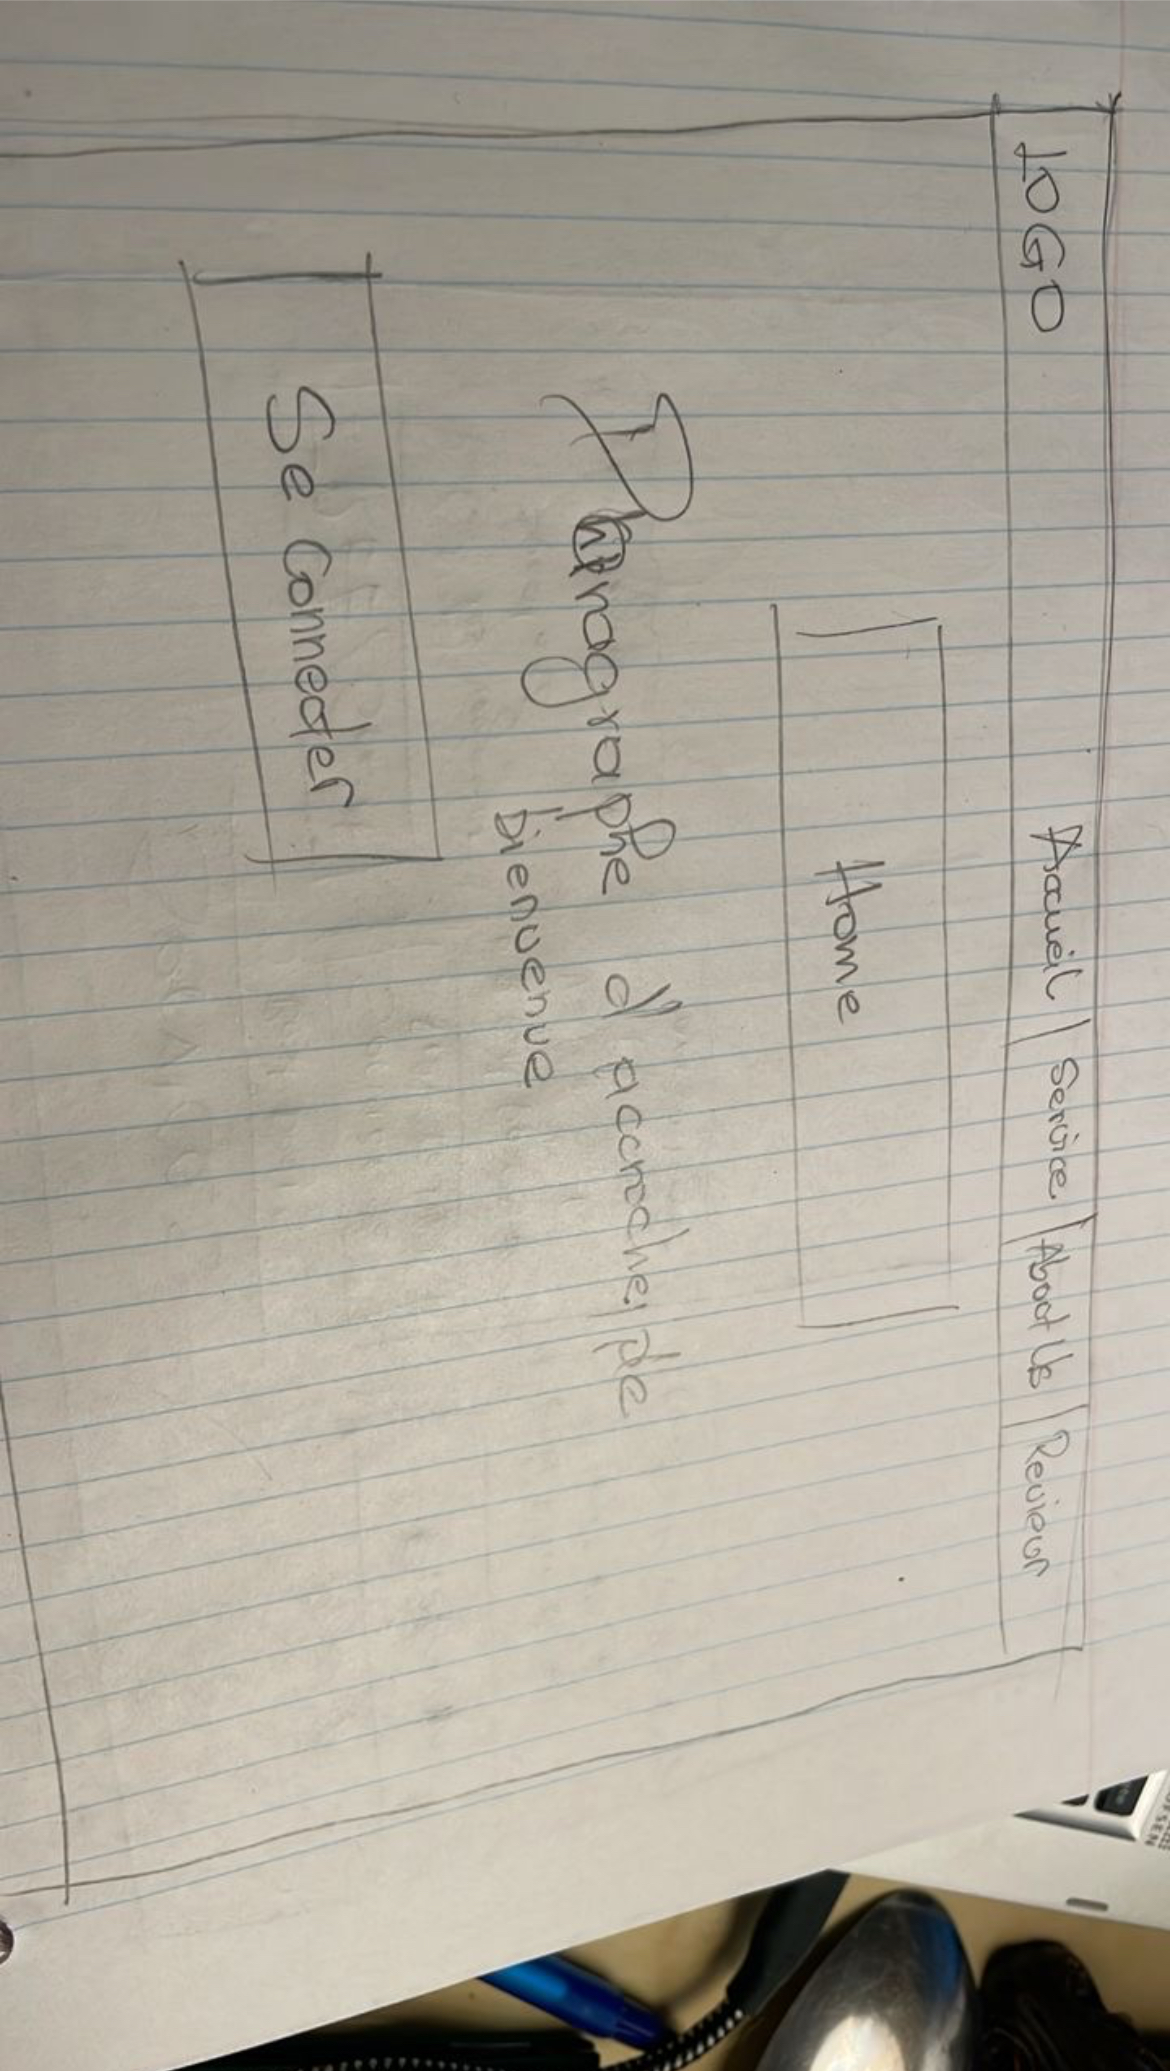 LOGO Accueil | Service | About Us | Review
Home
Paragraphe d'accroche, de
bienvenue
Se Connecter